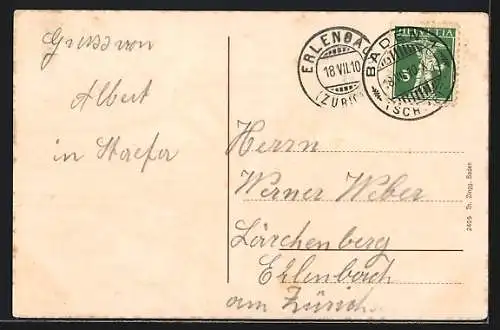 Grüsse von
Albert
in Staefa
ERLENBACH
18.VII.10
(ZÜRICH)
BADEN
(SCHW
HELVETIA
5
Herrn
Werner Weber
Lärchenberg
Erlenbach
am Zürich
2406 Th. Zingg, Baden